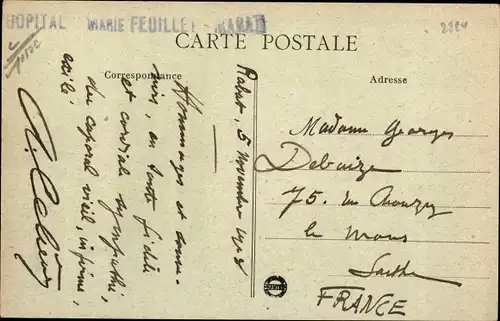 HOPITAL MARIE FEUILLET - RABAT
2224
CARTE POSTALE
Correspondance
Adresse
Maroc
Rabat, 5 novembre 1928
Hommages et souve-
nirs, en toute fidèle
et cordial sympathie,
du caporal vieil, infirme,
exilé.
Madame Georges
Debaize
75. rue
Le Mans
Sarthe
FRANCE